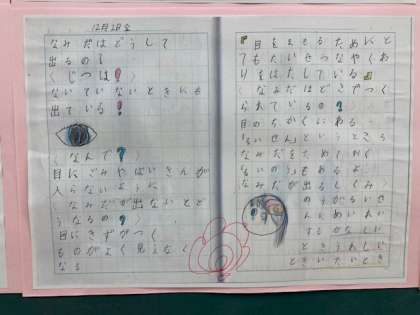 12月2日金
なみだはどうして
出るの?
〈じつは!〉
ないていないときにも
出ている!
〈なんで?〉
目にごみやばいきんが
入らないように
なみだが出ないとど
うなるの?
目にきずがつく
ものがよく見えなく
なる
『目をまもるためにと
てもたいせつなやくわ
りをはたしている』
〈なみだはどこでつく
られているの?〉
目のちかくにある
「るいせん」というところ
なみだをためておく
「るいのう」もあるよ
〈なみだが出るしくみ〉
のうがるいせ
んにめいれい
するかなしい
とき うれしい
とき いたいとき